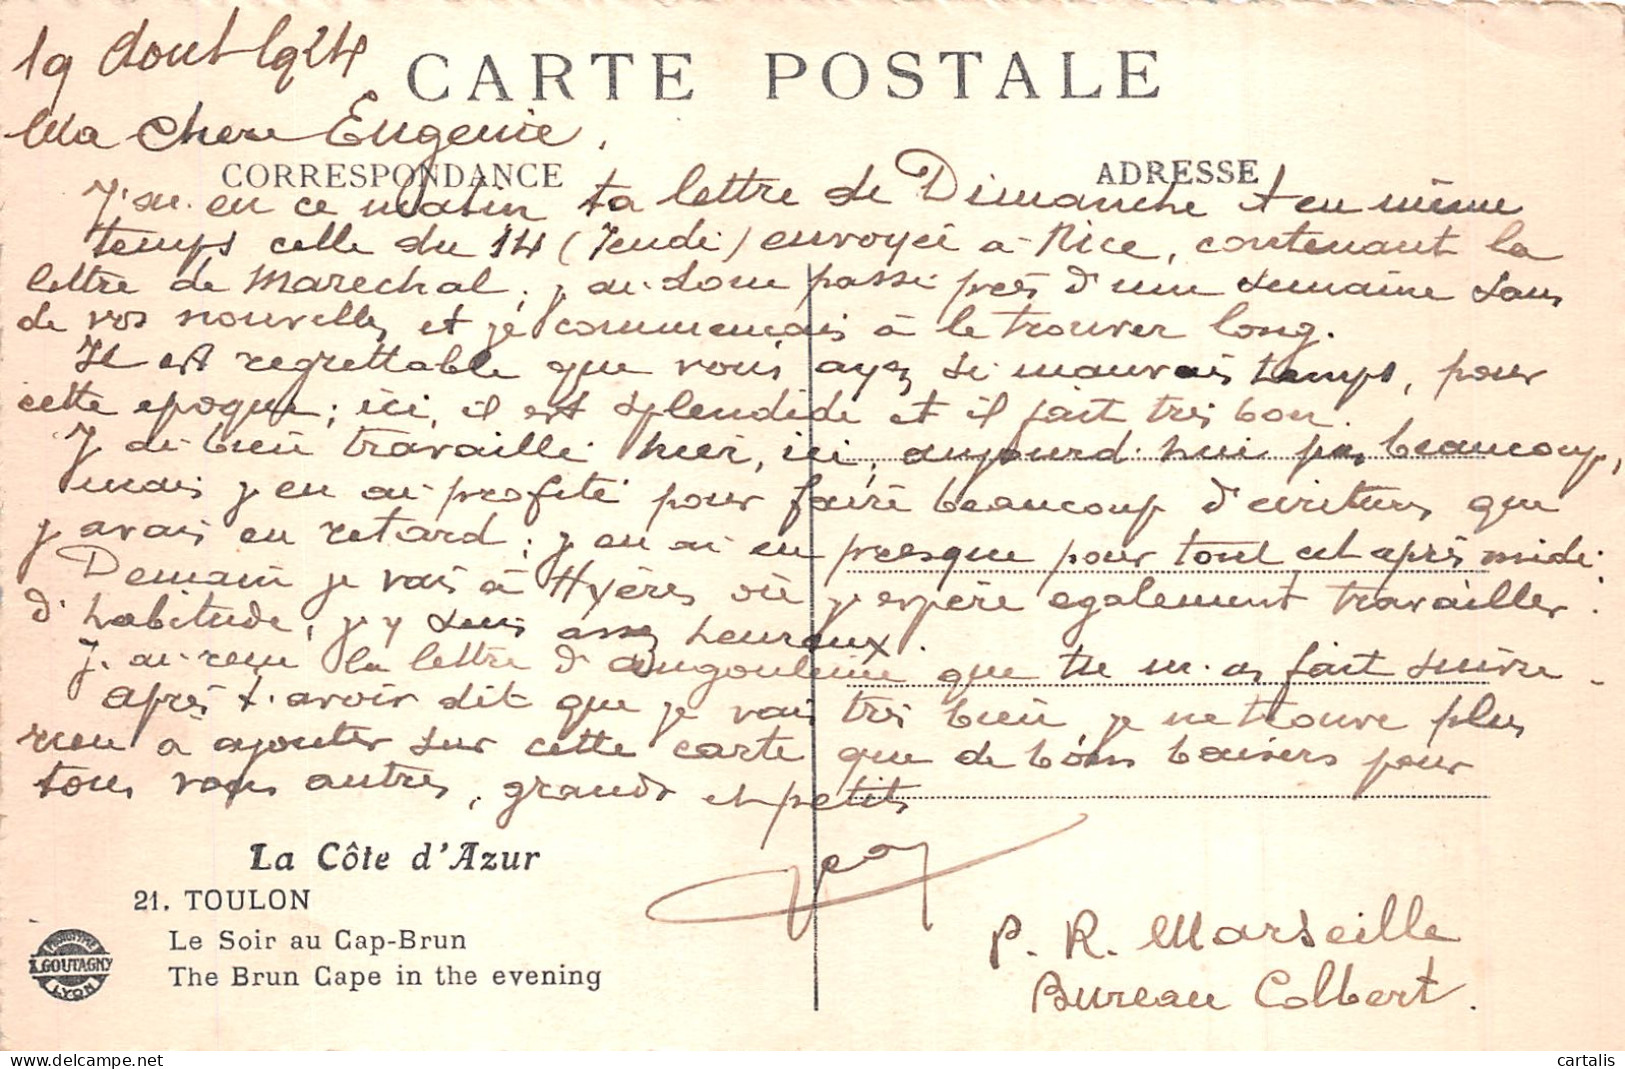 19 Aout 1924
CARTE POSTALE
Ma Chere Eugenie,
CORRESPONDANCE
ADRESSE
J'ai eu ce matin ta lettre de Dimanche et en même
temps celle du 14 (Jeudi) envoyée à Nice, contenant la
lettre de Marechal; j'ai donc passé près d'une semaine sans
de vos nouvelles et je commençais à le trouver long.
Il est regrettable que vous ayez si mauvais temps, pour
cette epoque; ici, il est splendide et il fait très bon.
J'ai bien travaillé hier, ici; aujourd'hui pas beaucoup,
mais j'en ai profité pour faire beaucoup d'ecritures que
j'avais en retard; j'en ai eu presque pour tout cet après midi.
Demain je vais à Hyères où j'espère egalement travailler.
d'habitude, j'y suis assez heureux.
J'ai reçu la lettre d'Angouleme que tu m'as fait suivre.
Après t'avoir dit que je vais très bien je ne trouve plus
rien a ajouter sur cette carte que de bons baisers pour
tous vous autres, grands et petits
La Côte d'Azur
21. TOULON
Le Soir au Cap-Brun
The Brun Cape in the evening
PHOTOTYPIE
L. GOUTAGNY
LYON
P. R. Marseille
Bureau Colbert.
cartalis